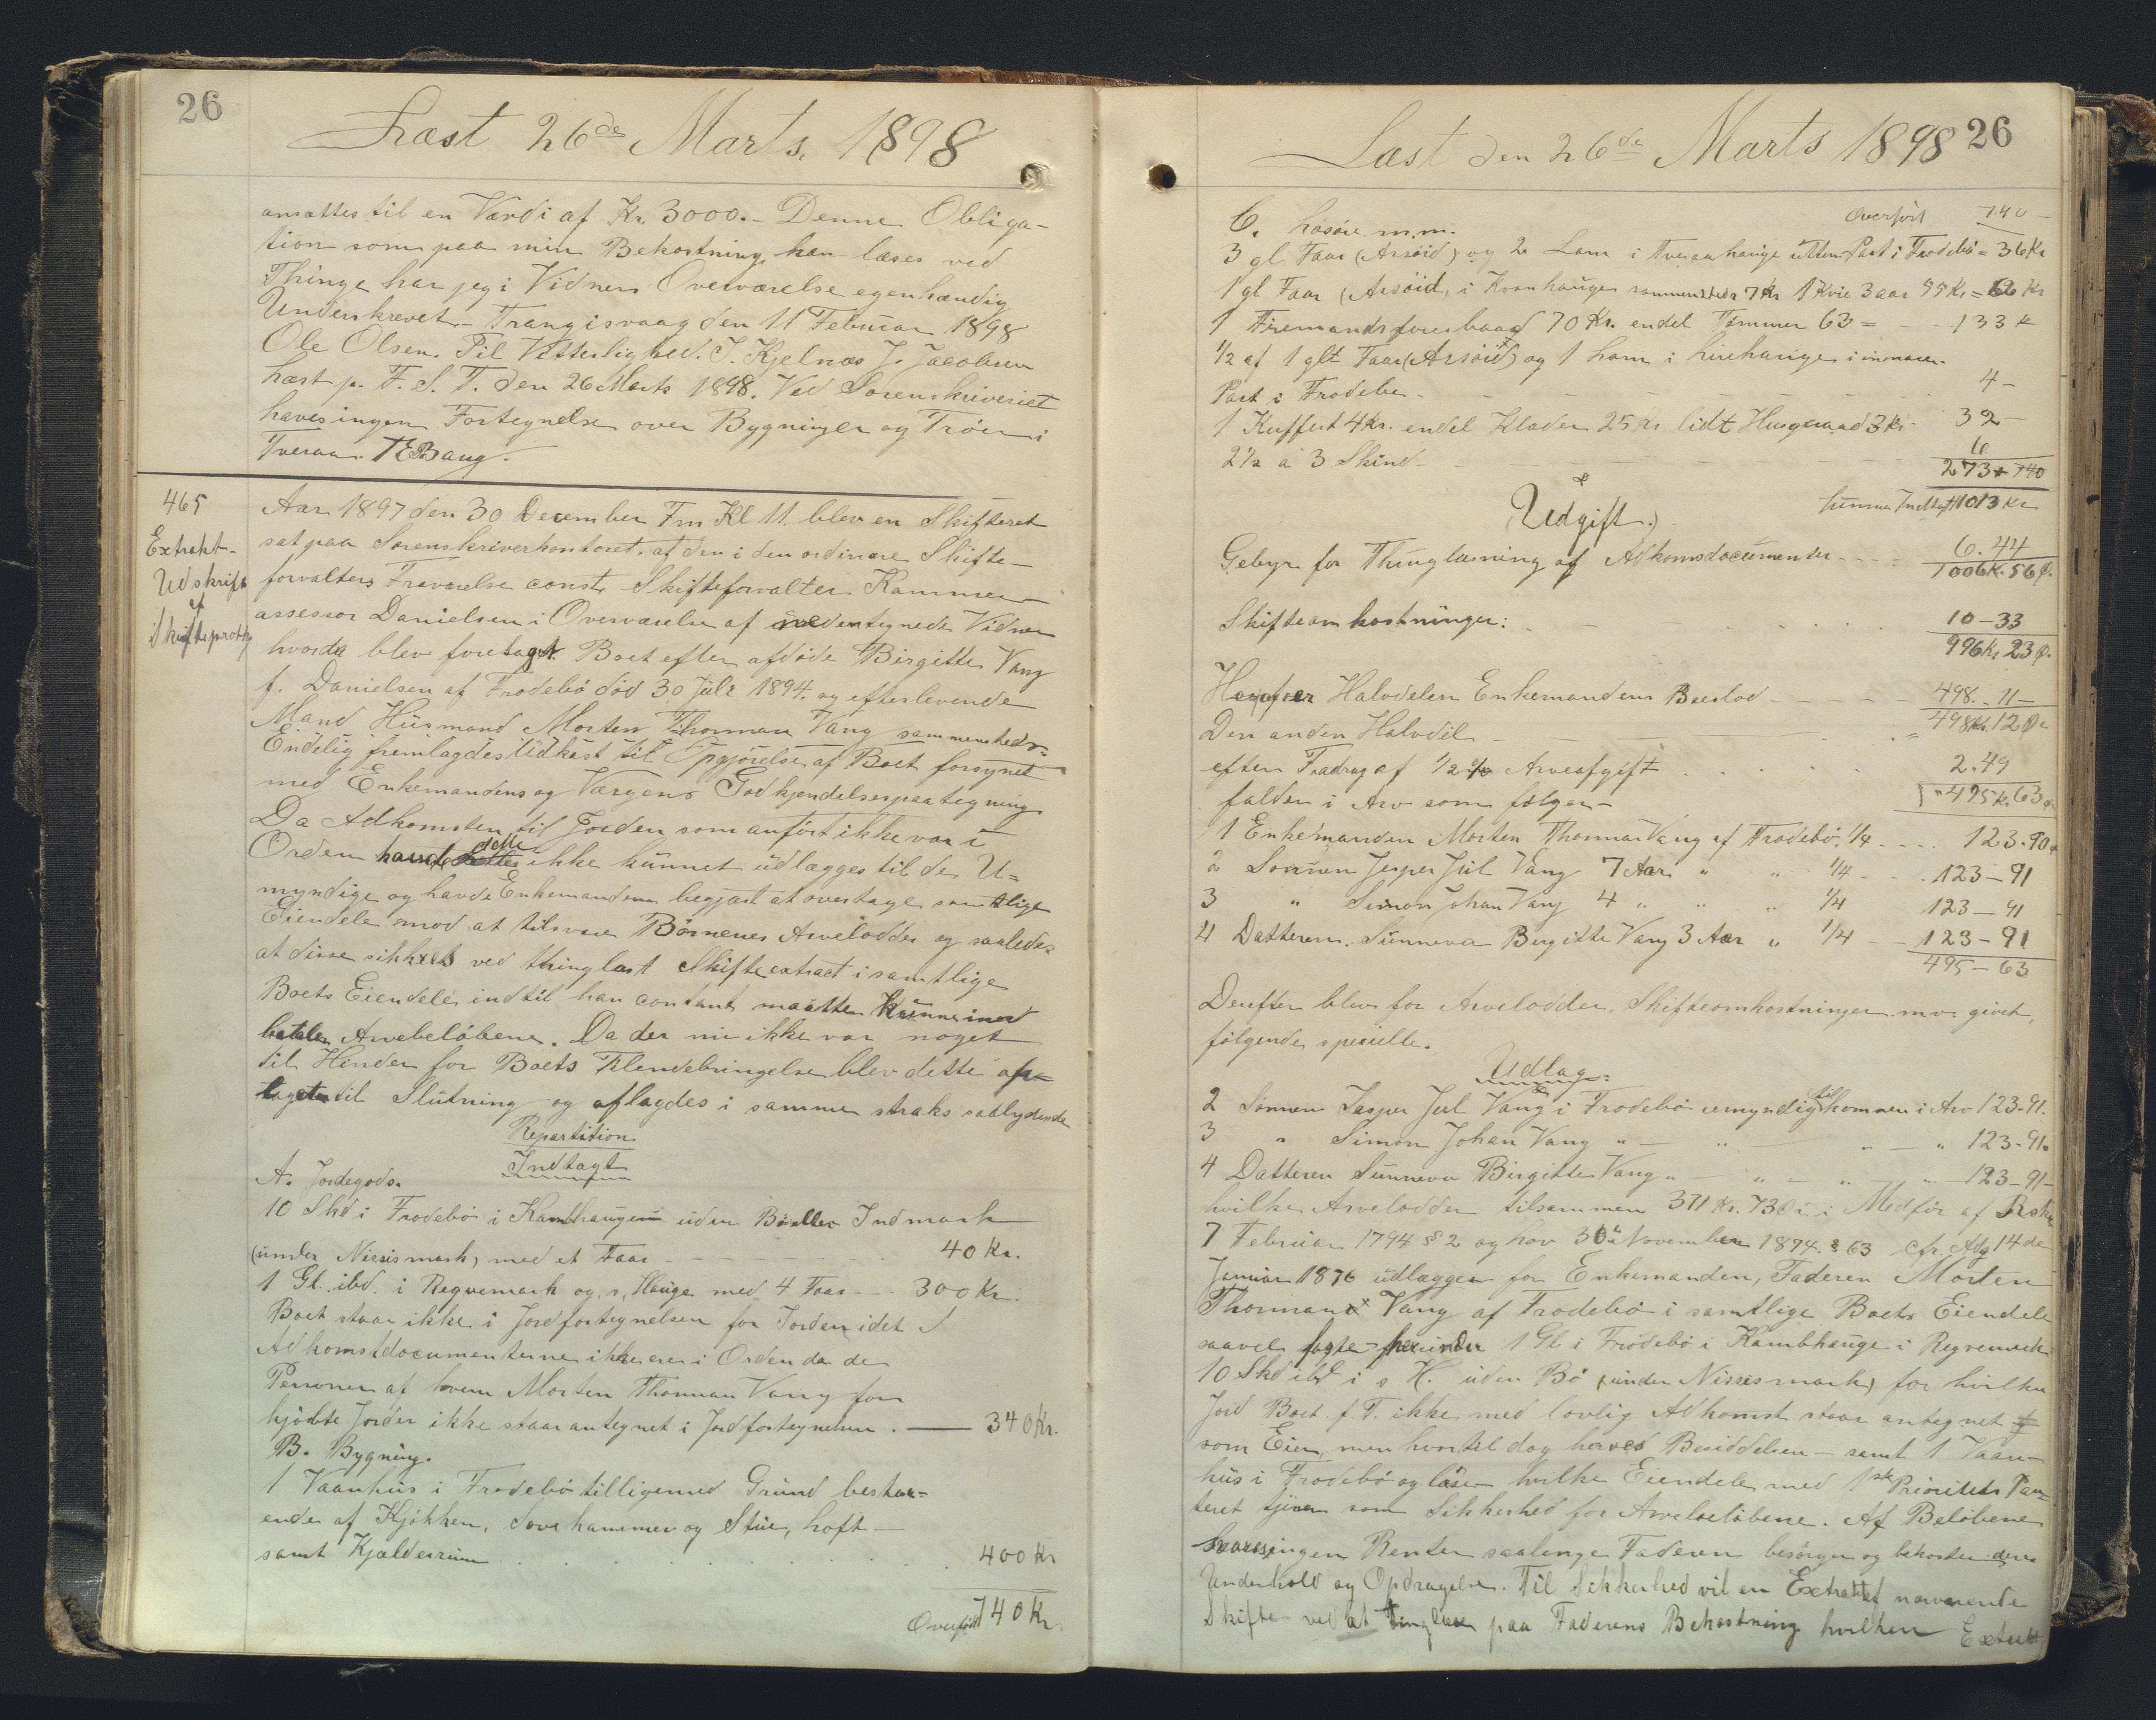 26
Læst 26de Marts. 1898
ansættes til en Værdi af Kr. 3000.- Denne Obliga-
tion som paa min Bekostning kan læses ved
Thinge har jeg i Vidners Overværelse egenhændig
Underskrevet.- Trangisvaag den 11 Februar 1898
Ole Olsen. Til Vitterlighed. J. Kjelnæs J. Jacobsen
Læst p. F. S. T. den 26 Marts 1898. Ved Sorenskriveriet
haves ingen Fortegnelse over Bygninger og Trøer i
Tveraa. Bang.
465
Extrakt-
Udskrift
af
Skifteprotk
Aar 1897 den 30 December Fm Kl 11. blev en Skifteret
sat paa Sorenskriverkontoret. af den i den ordinære Skifte-
forvalters Fraværelse const. Skifteforvalter Kammer-
assessor Danielsen i Overværelse af nedentegnede Vidner
hvorda blev foretaget Boet efter afdøde Birgitte Vang
f. Danielsen af Frodebø død 30 Juli 1894. og efterlevende
Mand Husmand Morten Thomsen Vang sammesteds.
Endelig fremlagdes Udkast til Opgjørelse af Boet forsynet
med Enkemandens og Værgens Godkjendelsespaategning
Da Adkomsten til Jorden som anført ikke var i
Orden havde dette ikke kunnet udlægges til de U=
myndige og havde Enkemanden begjært at overtage samtlige
Eiendele mod at tilsvare Børnenes Arvelodder og saaledes
at disse sikkres ved thinglæst Skifteextract i samtlige
Boets Eiendele indtil han contant maatte kunne ind
betale Arvebeløbene. Da der nu ikke var noget
til Hinder for Boets Tilendebringelse blev dette op-
taget til Slutning og aflagdes i samme straks saalydende
Repartition
Indtægt
A. Jordegods.
10 Skd i Frodebø i Kambhaugen uden Bø eller Indmark
(under Nissismark) med et Faar - - - 40 Kr.
1 Gl. ibd. i Regvemark og s. Hauge med 4 Faar - - - 300 Kr.
Boet staar ikke i Jordfortegnelsen for Jorden idet
Adkomstdocumenterne ikke ere i Orden da de
Personer af hvem Morten Thomsen Vang for
kjøbte Jorder ikke staar antegnet i Jordfortegnelsen. — 340 Kr.
B. Bygning.
1 Vaanhus i Frodebø tilligemed Grund bestaa-
ende af Kjøkken, Sovekammer og Stue, Loft-
samt Kjælderrum . . . . 400 Kr
Overført 740 Kr.
Læst den 26de Marts 1898
26
Overført 740 -
C. Løsøre m.m.
3 gl. Faar (Arsøid) og 2 Lam i Tveraahauge utten Part i Frodebø = 36 Kr
1 gl Faar (Arsøid) i Kvanhauge sammesteds 7 Kr 1 Kvie 3 aar 55 Kr = 62 Kr
1 Firemandsfarerbaad 70 Kr. endel Tømmer 63 = - - 133 K
1/2 af 1 glt Faar (Arsøid) og 1 Lam i
Part i Frodebø - - - - 4 -
1 Kuffert 4 Kr. endel Klæder 25 Kr lidt Husgeraad 3 Kr. 32 -
2 1/2 a 3 Skind - - - 6
273 + 740
Summa Indtægt 1013 Kr
Udgift.
Gebyr for Thinglæsning af Adkomsdocumenter - - - 6.44
1006 K. 56 Ø.
Skifteomkostninger: - - - 10-33
996 Kr 23 Ø.
Heraf er Halvdelen Enkemandens Boeslod - - - 498. 11 -
Den anden Halvdel - - - = 498 Kr. 12 Ø
efter Fradrag af 1/2 % Arveafgift . . . . 2.49
falder i Arv som følger - 495 K. 63 Ø
1 Enkemanden Morten Thomsen Vang af Frodebø. 1/4 - - - 123.90
2 Sønnen Jesper Jul Vang 7 Aar " " 1/4 - - 123-91
3 " Simon Johan Vang 4 " " " 1/4 123-91
4 Datteren. Sunneva Birgitte Vang 3 Aar " 1/4 - - 123-91
495-63
Derefter blev for Arvelodder, Skifteomkostninger m.v. givet,
følgende specielle.
Udlæg:
2 Sønnen Jesper Jul Vang i Frodebø umyndig tilkommer i Arv 123-91.
3 " Simon Johan Vang " - " - " - " 123-91.
4 Datteren Sunneva Birgitte Vang " - " - " - " 123-91-
hvilke Arvelodder tilsammen 371 Kr. 73 Ø i Medfør af Rskr
7 Februar 1794 § 2 og Lov 30te November 1874. § 63 cfr. Adg 14 de
Januar 1876 udlægges for Enkemanden, Faderen Morten
Thomsen Vang af Frodebø i samtlige Boets Eiendele
saavel faste - herunder 1 Gl i Frodebø i Kambhauge i Regvemark
10 Skd ibd i s H. uden Bø (under Nissismark) for hvilken
Jord Boet f. T. ikke med lovlig Adkomst staar antegnet
som Eier, men hvortil dog haves Besiddelsen - samt 1 Vaan-
hus i Frodebø og løse - hvilke Eiendele med 1ste Prioritets Pan-
teret tjener som Sikkerhed for Arvebeløbene. Af Beløbene
svares ingen Renter saalænge Faderen besørger og bekoster deres
Underhold og Opdragelse. Til Sikkerhed vil en Extrakt af nærværende
Skifte ved at tinglæse paa Faderens Bekostning hvilken Extrakt